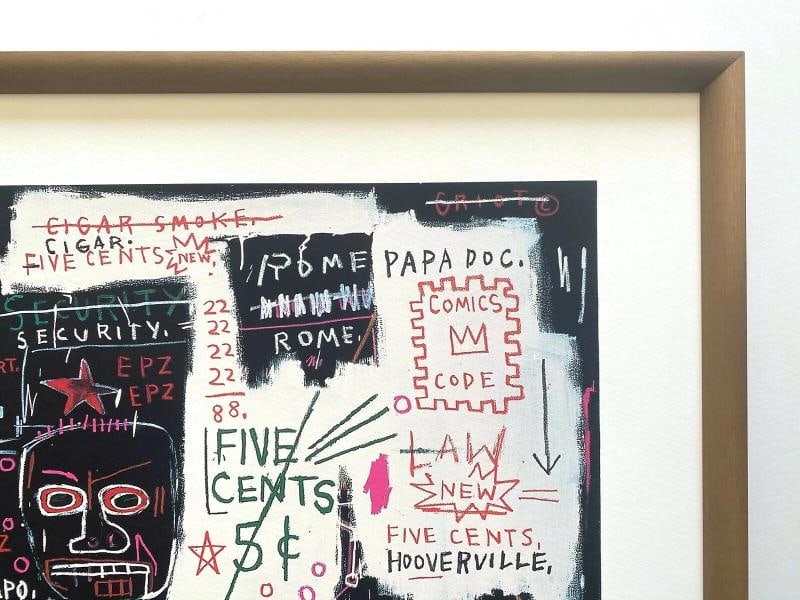 GRIOT ©
CIGAR SMOKE.
CIGAR.
FIVE CENTS
NEW.
ROME
ROME.
PAPA DOC.
COMICS
CODE
SECURITY
SECURITY.
RT.
EPZ
EPZ
22
22
22
22
88.
FIVE
CENTS
5¢
LAW
NEW
FIVE CENTS.
HOOVERVILLE.
Z
APO.